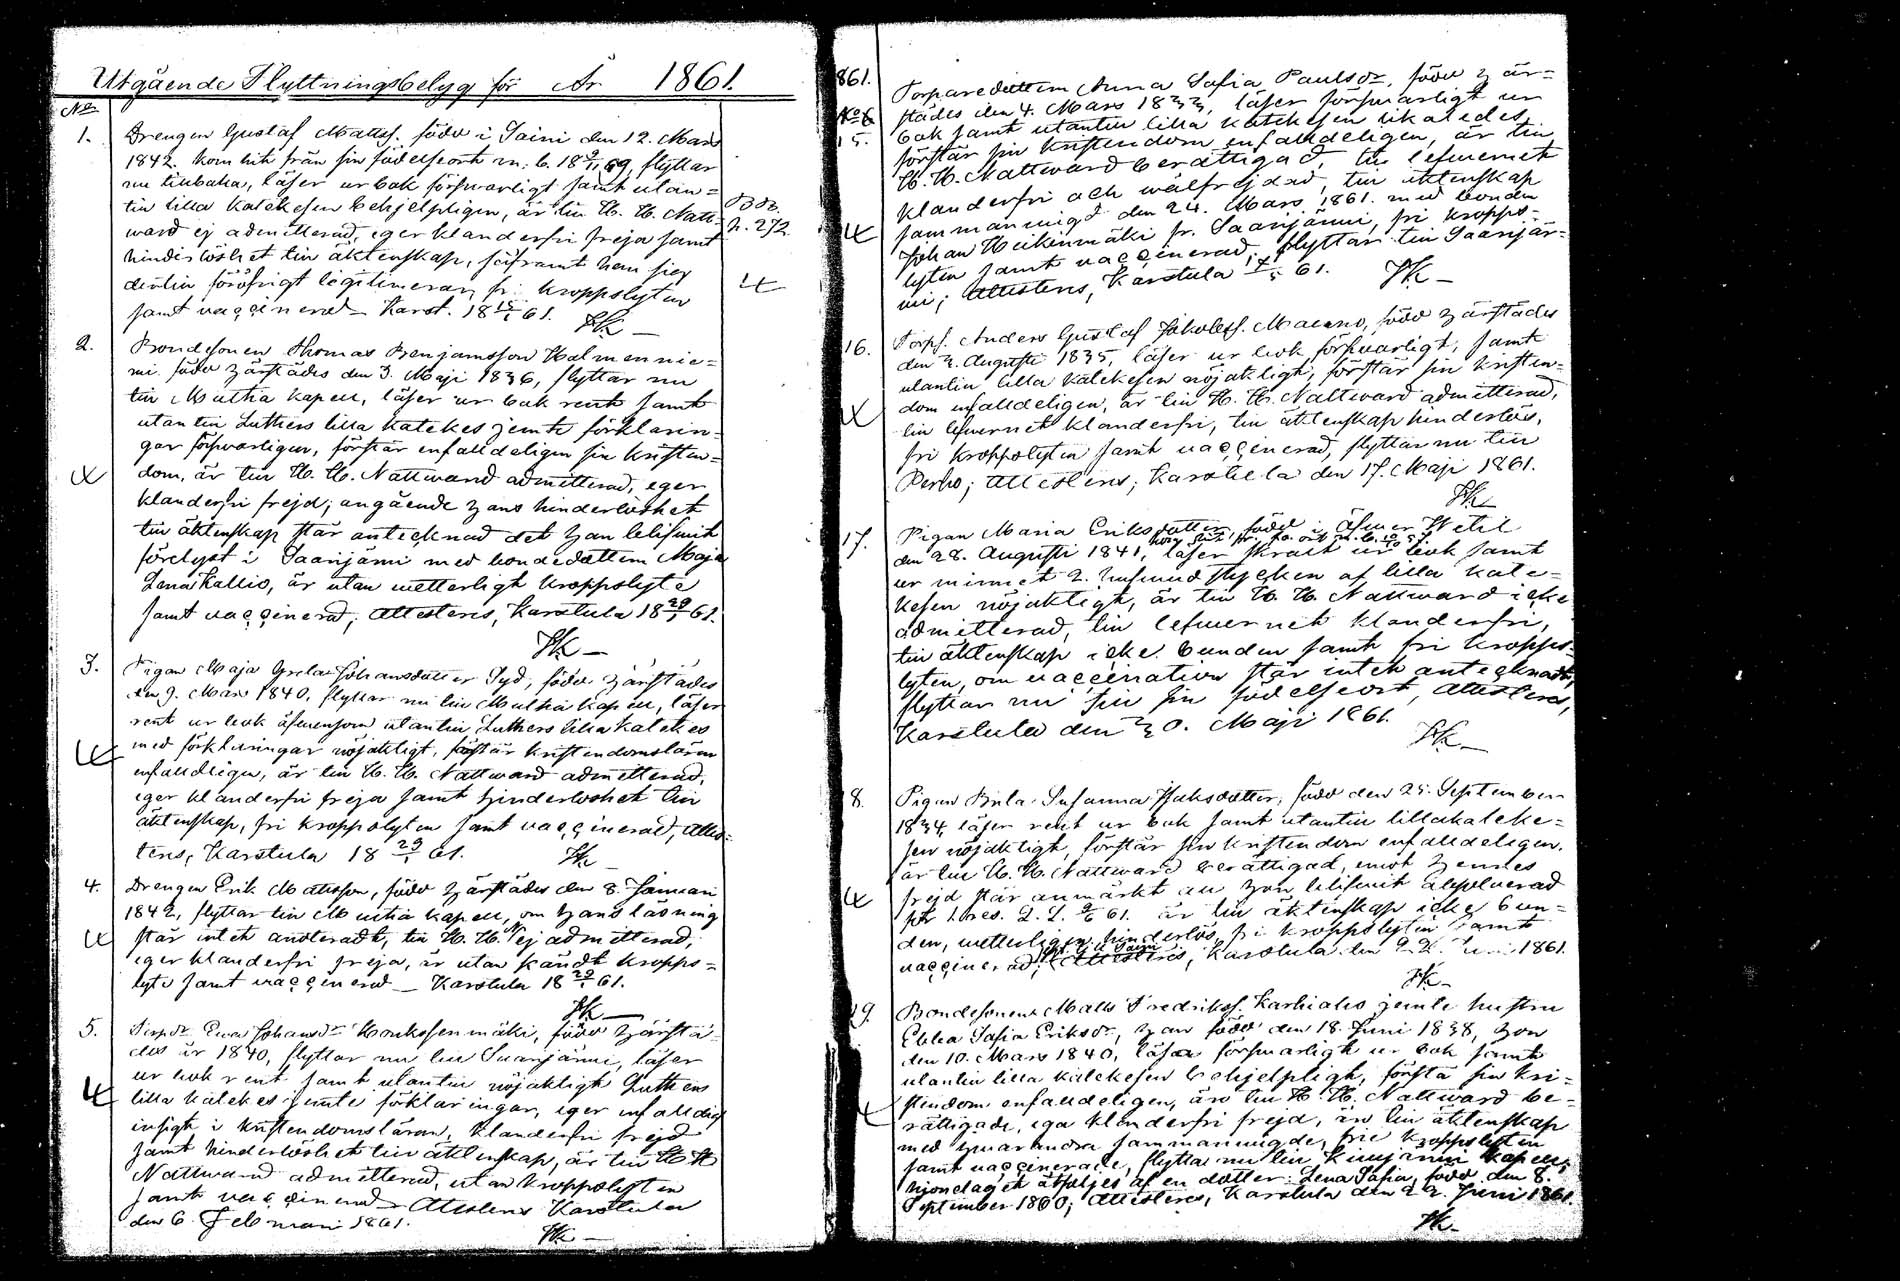 Utgående Flyttningsbetyg för År 1861.
No
1. Drengen Gustaf Mattss. född i Saini den 12. Mars
1842. kom hit från sin födelseort m. b. flyttar
nu tillbaka, läser ur bok försvarligt samt utan=
till lilla katekesen behjelpligen, är till H. H. Natt=
ward ej admitterad, eger klanderfri frejd samt
hinderlöshet till äktenskap, såframt han sig
dertill föröfrigt legitimerar, fri kroppslyten
samt vaccinerad — Karst. 18 15/1 61.
p. 272.
2. Bondesonen Thomas Benjamsson Halmennie=
mi född härstädes den 3. Maji 1836, flyttar nu
till Multia kapell, läser ur bok rent samt
utantill Luthers lilla katekes jemte förklarin=
gar försvarligen, förstår enfaldeligen sin kristen=
dom, är till H. H. Nattward admitterad, eger
klanderfri frejd; angående hans hinderlöshet
till äktenskap står antecknad det han blifwit
förelyst i Saarijärvi med bondedottern Maja
Lena Kallio, är utan wetterligt kroppslyte
samt vaccinerad; Attesteras, Karstula 18 29/1 61.
3. Pigan Maja Greta Johansdotter Syd, född härstädes
den 9. Mars 1840, flyttar nu till Multia kapell, läser
rent ur bok äfwensom utantill Luthers lilla katekes
med förklaringar nöjaktigt, förstår kristendomsläran
enfaldeligen, är till H. H. Nattward admitterad,
eger klanderfri frejd samt hinderlöshet till
äktenskap, fri kroppslyten samt vaccinerad, Attes=
teras, Karstula 18 29/1 61.
4. Drengen Erik Matsson, född härstädes den 8. Januari
1842, flyttar till Multia kapell, om hans läsning
står intet anoteradt, till H. H. N. ej admitterad,
eger klanderfri frejd, är utan kändt kropps=
lyte samt vaccinerad — Karstula 18 29/1 61.
5. Torpdr Ewa Johansdr Honkosenmäki, född härstä=
des år 1840, flyttar nu till Saarijärvi, läser
ur bok rent samt utantill nöjaktigt Luthers
lilla katekes jemte förklaringar, eger enfaldig
insigt i kristendomsläran, klanderfri frejd
samt hinderlöshet till äktenskap, är till H H
Nattward admitterad, utan kroppslyten
samt vaccinerad — Attesteras Karstula
den 6. Februari 1861.
861.
No
15. Torparedottern Anna Sofia Paulsdr, född här=
städes den 4. Mars 1833, läser försvarligt ur
bok samt utantill lilla katekesen likaledes,
förstår sin kristendom enfaldeligen, är till
H. H. Nattward berättigad, till lefwernet
klanderfri och wälfrejdad, till äktenskap
sammanvigd den 24. Mars 1861. med bonden
Johan Heikinmäki fr. Saarijärvi, fri kropps=
lyten samt vaccinerad; flyttar till Saarijär=
vi; Attesteras, Karstula 61.
16. Torps. Anders Gustaf Jakobss. Maeno, född härstädes
den 3. Augusti 1835, läser ur bok försvarligt, samt
utantill lilla katekesen nöjaktligt, förstår sin kristen=
dom enfaldeligen, är till H. H. Nattward admitterad,
till lefwernet klanderfri, till äktenskap hinderlös,
fri kroppslyten samt vaccinerad, flyttar nu till
Perho; Attesteras; Karstula den 17. Maji 1861.
17. Pigan Maria Eriksdotter, född i Öfwer Wetil
den 28. Augusti 1841, läser swait ur bok samt
ur minnet 2. hufwud stycken af lilla kate=
kesen nöjaktligt, är till H. H. Nattward icke
admitterad, till lefwernet klanderfri,
till äktenskap icke bunden samt fri kropps=
lyten, om vaccination står intet antecknadt,
flyttar nu till sin födelseort, Attesteras,
Karstula den 30. Maji 1861.
18. Pigan Brita Susanna Isaksdotter, född den 25. September
1834, läser rent ur bok samt utantill lilla kateke=
sen nöjaktligt, förstår sin kristendom enfaldeligen,
är till H. H. Nattward berättigad, emot hennes
frejd står anmärkt att hon blifwit absolverad
för 1. res. L. L. 61. är till äktenskap icke bun=
den, wetterligen hinderlös, fri kroppslyten samt
vaccinerad; Attesteras, Karstula den 22. Juni 1861.
19. Bondesonen Matts Fredrikss. Karhiaho jemte hustru
Ebba Sofia Eriksdr, han född den 18. Juni 1838, hon
den 10. Mars 1840, läsa försvarligt ur bok samt
utantill lilla katekesen behjelpligt, förstå sin kri=
stendom enfaldeligen, äro till H. H. Nattward be=
rättigade, ega klanderfri frejd, äro till äktenskap
med hwarandra sammanvigde, frie kroppslyten
samt vaccinerade, flytta nu till Kiwijärwi kapell;
hjonelaget åtföljes af en dotter: Lena Sofia, född den 8.
September 1860; Attesteras, Karstula den 22. Juni 1861.